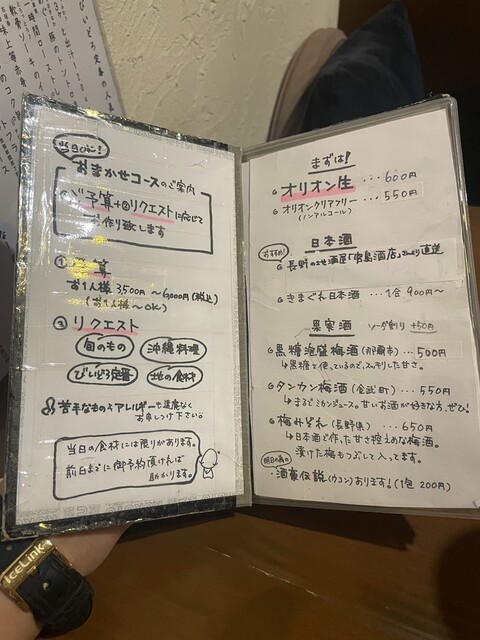 当日OK!
おまかせコースのご案内
ご予算+②リクエストに応じて
お作り致します
① ご予算
お1人様 3,500円～6,000円(税込)
(お1人様～OK)
② リクエスト
旬のもの
沖縄料理
びいどろ定番
地の食材
苦手なものやアレルギーも遠慮なく
お申しつけ下さい。
当日の食材には限りがあります。
前日までに御予約頂ければ
助かります。
まずは!
オリオン生 ... 600円
オリオンクリアフリー ... 550円
(ノンアルコール)
日本酒
おすすめ!
長野の地酒屋「宮島酒店」さんより直送
きまぐれ日本酒 ... 1合 900円～
果実酒 ソーダ割り +50円
黒糖泡盛梅酒(那覇市) ... 500円
↳黒糖を使っているのに、スッキリした甘さ。
タンカン梅酒(金武町) ... 550円
↳まるでミカンジュース。甘いお酒が好きな方、ぜひ!
梅みぞれ(長野県) ... 650円
↳日本酒で作った甘さ控えめな梅酒。
漬けた梅もつぶして入ってます。
明日の為の
酒豪伝説(ウコン)あります!(1包 200円)
ICELINK